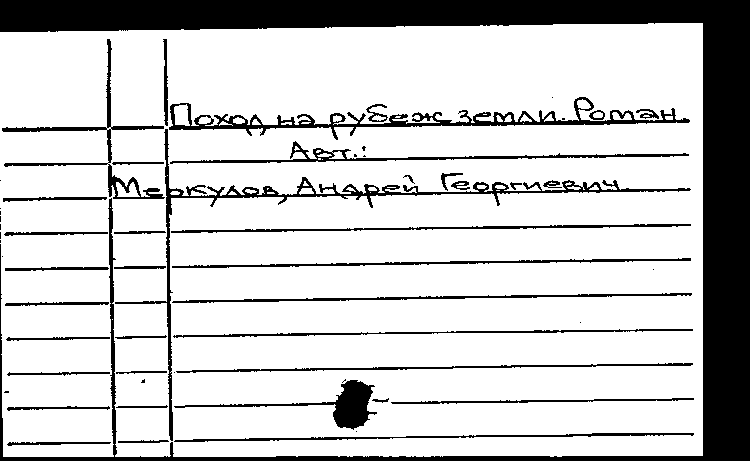 Поход на рубеж земли. Роман.
Авт.:
Меркулов, Андрей Георгиевич